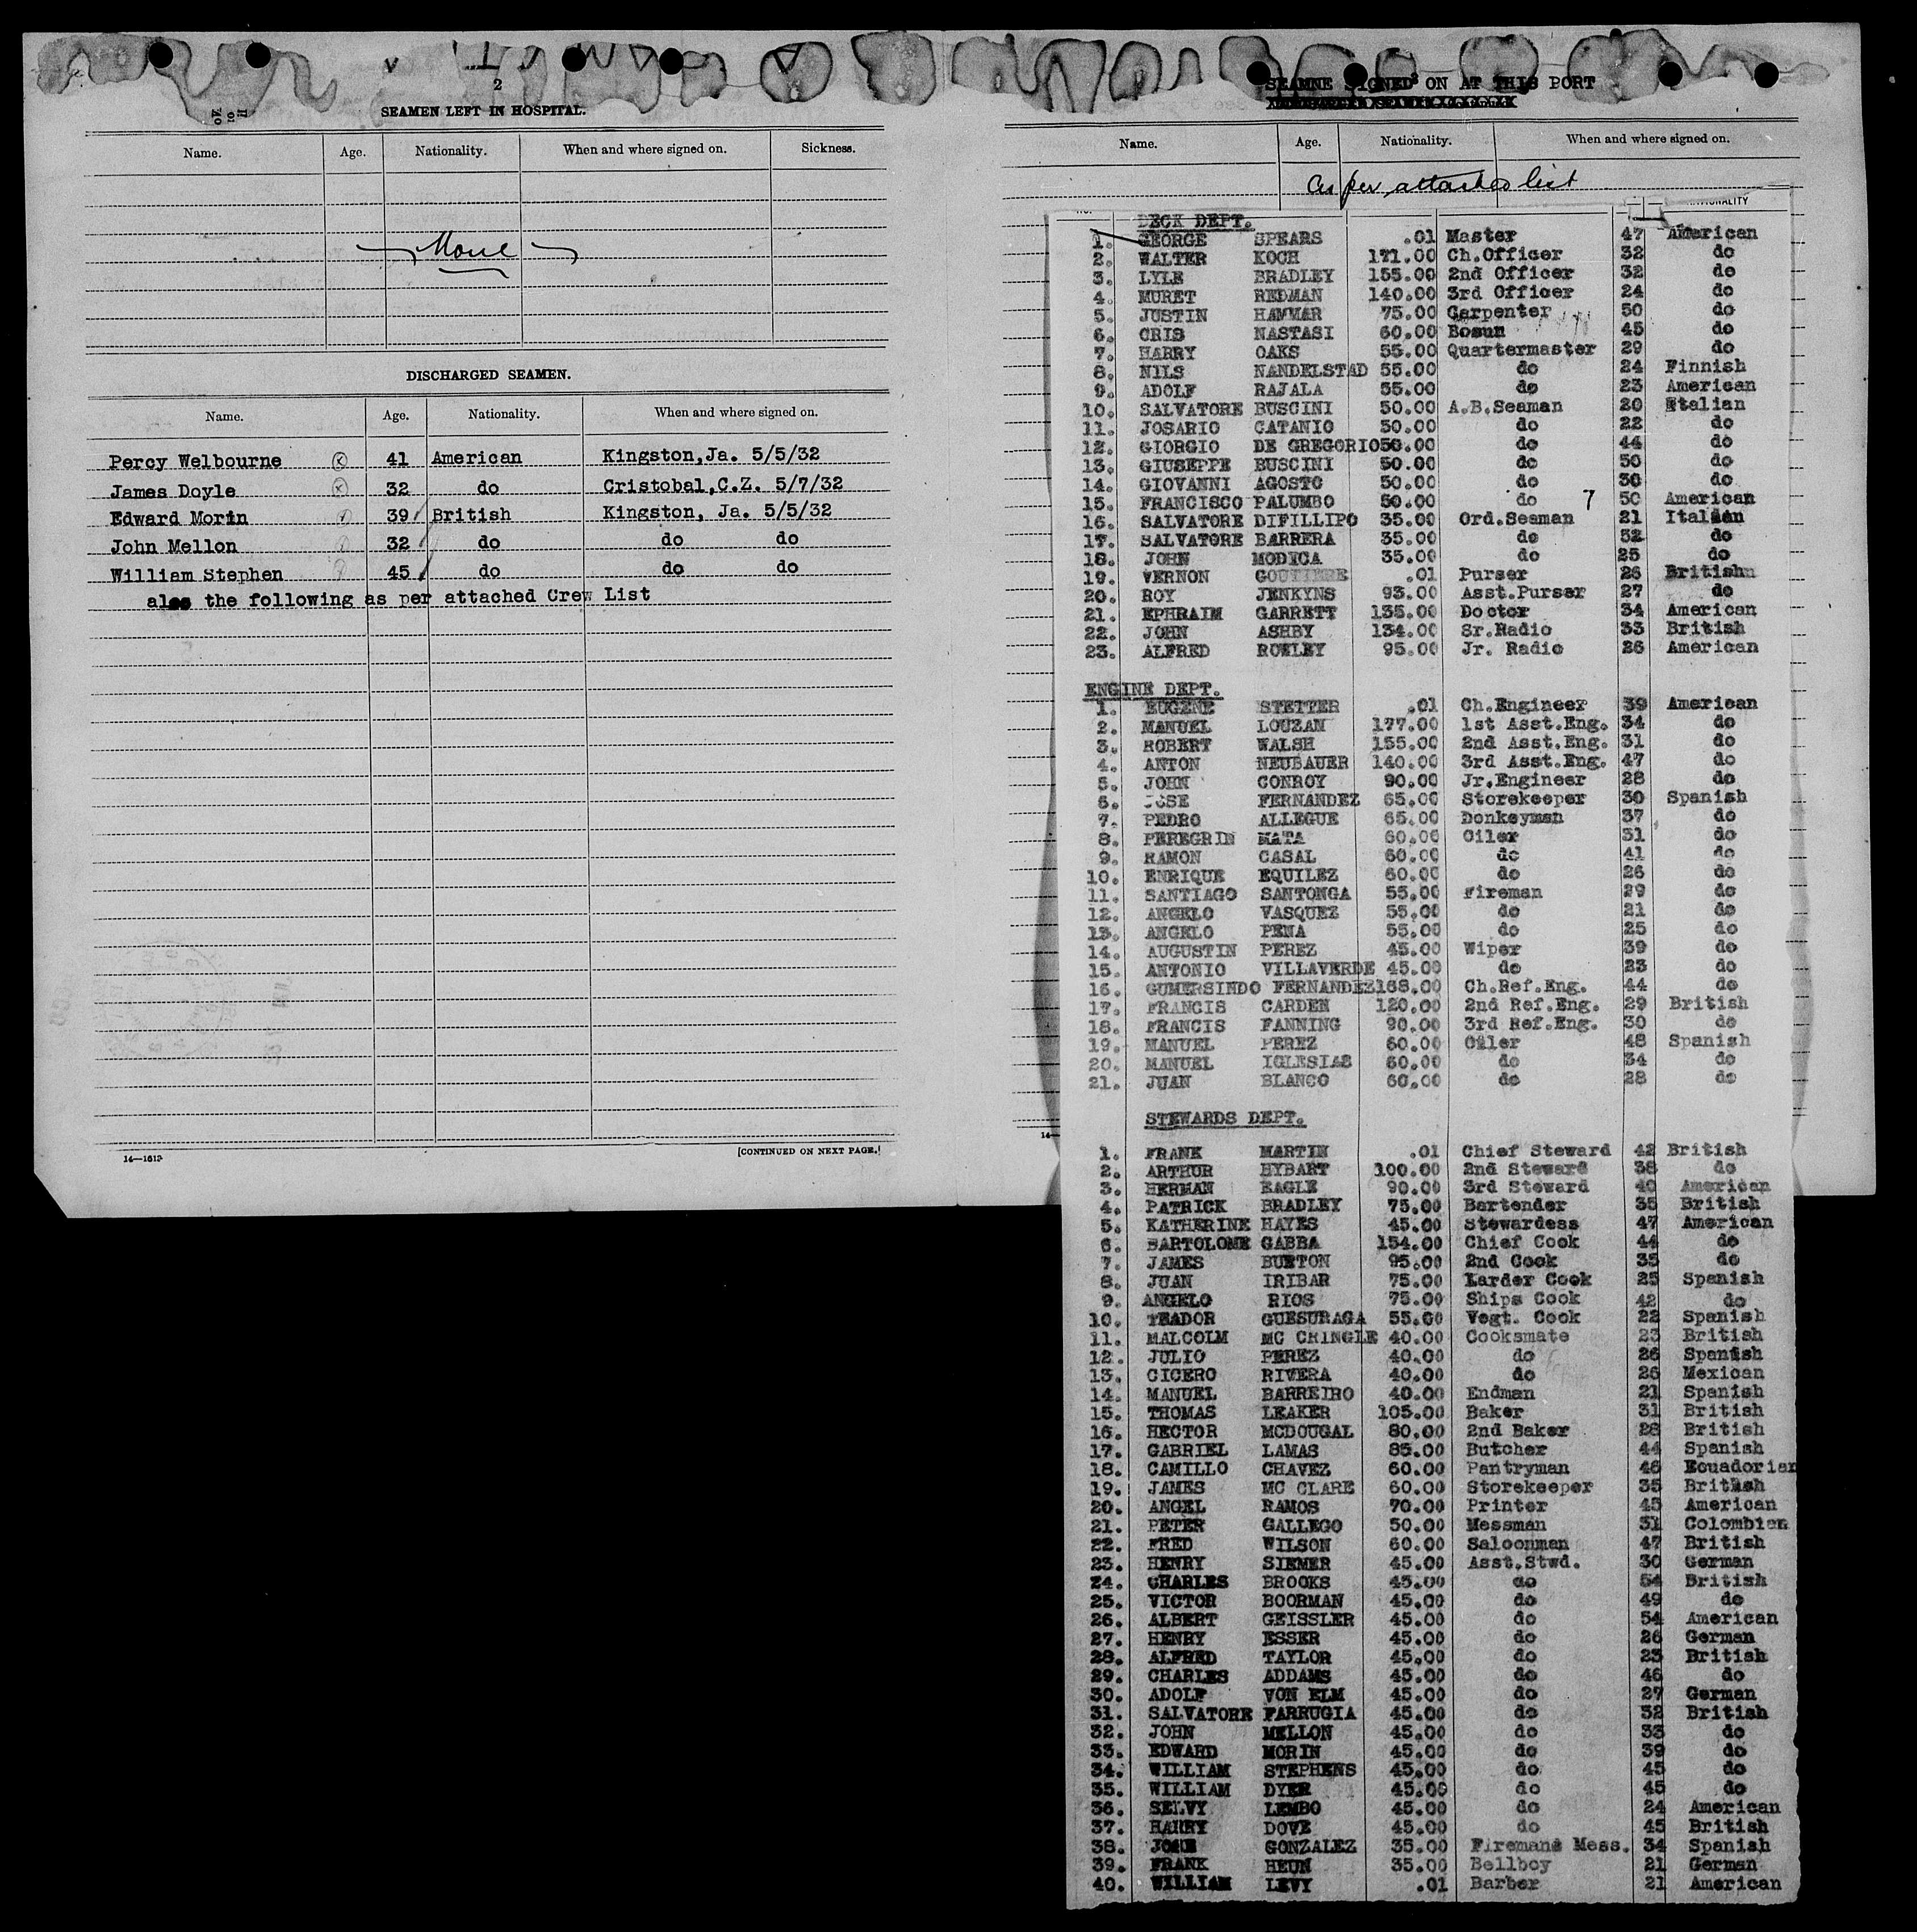 2
SEAMEN LEFT IN HOSPITAL.
Name. Age. Nationality. When and where signed on. Sickness.
None
DISCHARGED SEAMEN.
Name. Age. Nationality. When and where signed on.
Percy Welbourne 41 American Kingston,Ja. 5/5/32
James Doyle 32 do Cristobal,C.Z. 5/7/32
Edward Morin 39 British Kingston, Ja. 5/5/32
John Mellon 32 do do do
William Stephen 45 do do do
also the following as per attached Crew List
14—1613
[CONTINUED ON NEXT PAGE.]
SEAMNE SIGNED ON AT THIS PORT
Name. Age. Nationality. When and where signed on.
As per attached list
NATIONALITY
DECK DEPT.
1. GEORGE SPEARS .01 Master 47 American
2. WALTER KOCH 171.00 Ch.Officer 32 do
3. LYLE BRADLEY 155.00 2nd Officer 32 do
4. MURET REDMAN 140.00 3rd Officer 24 do
5. JUSTIN HAMMAR 75.00 Carpenter 50 do
6. CRIS NASTASI 60.00 Bosun 45 do
7. HARRY OAKS 55.00 Quartermaster 29 do
8. NILS NANDELSTAD 55.00 do 24 Finnish
9. ADOLF RAJALA 55.00 do 23 American
10. SALVATORE BUSCINI 50.00 A.B.Seaman 20 Italian
11. JOSARIO CATANIO 50.00 do 22 do
12. GIORGIO DE GREGORIO 50.00 do 44 do
13. GIUSEPPE BUSCINI 50.00 do 50 do
14. GIOVANNI AGOSTO 50.00 do 30 do
15. FRANCISCO PALUMBO 50.00 do 7 50 American
16. SALVATORE DIFILLIPO 35.00 Ord.Seaman 21 Italian
17. SALVATORE BARRERA 35.00 do 32 do
18. JOHN MODICA 35.00 do 25 do
19. VERNON GOUTIERE .01 Purser 26 British
20. ROY JENKYNS 93.00 Asst.Purser 27 do
21. EPHRAIM GARRETT 135.00 Doctor 34 American
22. JOHN ASHBY 134.00 Sr.Radio 33 British
23. ALFRED ROWLEY 95.00 Jr. Radio 26 American
ENGINE DEPT.
1. EUGENE STETTER .01 Ch.Engineer 39 American
2. MANUEL LOUZAN 177.00 1st Asst.Eng. 34 do
3. ROBERT WALSH 155.00 2nd Asst.Eng. 31 do
4. ANTON NEUBAUER 140.00 3rd Asst.Eng. 47 do
5. JOHN CONROY 90.00 Jr.Engineer 28 do
6. JOSE FERNANDEZ 65.00 Storekeeper 30 Spanish
7. PEDRO ALLEGUE 65.00 Donkeyman 37 do
8. PEREGRIN MATA 60.00 Oiler 31 do
9. RAMON CASAL 60.00 do 41 do
10. ENRIQUE EQUILEZ 60.00 do 26 do
11. SANTIAGO SANTONGA 55.00 Fireman 29 do
12. ANGELO VASQUEZ 55.00 do 21 do
13. ANGELO PENA 55.00 do 25 do
14. AUGUSTIN PEREZ 45.00 Wiper 39 do
15. ANTONIO VILLAVERDE 45.00 do 23 do
16. GUMERSINDO FERNANDEZ 168.00 Ch.Ref.Eng. 44 do
17. FRANCIS CARDEN 120.00 2nd Ref.Eng. 29 British
18. FRANCIS FANNING 90.00 3rd Ref.Eng. 30 do
19. MANUEL PEREZ 60.00 Oiler 48 Spanish
20. MANUEL IGLESIAS 60.00 do 34 do
21. JUAN BLANCO 60.00 do 28 do
STEWARDS DEPT.
1. FRANK MARTIN .01 Chief Steward 42 British
2. ARTHUR HYBART 100.00 2nd Steward 38 do
3. HERMAN EAGLE 90.00 3rd Steward 40 American
4. PATRICK BRADLEY 75.00 Bartender 35 British
5. KATHERINE HAYES 45.00 Stewardess 47 American
6. BARTOLOME GABBA 154.00 Chief Cook 44 do
7. JAMES BURTON 95.00 2nd Cook 35 do
8. JUAN IRIBAR 75.00 Larder Cook 25 Spanish
9. ANGELO RIOS 75.00 Ships Cook 42 do
10. TEADOR GUESURAGA 55.00 Vegt. Cook 22 Spanish
11. MALCOLM MC CRINGLE 40.00 Cooksmate 23 British
12. JULIO PEREZ 40.00 do 26 Spanish
13. CICERO RIVERA 40.00 do 26 Mexican
14. MANUEL BARREIRO 40.00 Endman 21 Spanish
15. THOMAS LEAKER 105.00 Baker 31 British
16. HECTOR MCDOUGAL 80.00 2nd Baker 28 British
17. GABRIEL LAMAS 85.00 Butcher 44 Spanish
18. CAMILLO CHAVEZ 60.00 Pantryman 46 Ecuadorian
19. JAMES MC CLARE 60.00 Storekeeper 35 British
20. ANGEL RAMOS 70.00 Printer 45 American
21. PETER GALLEGO 50.00 Messman 31 Colombian
22. FRED WILSON 60.00 Saloonman 47 British
23. HENRY SIEMER 45.00 Asst.Stwd. 30 German
24. CHARLES BROOKS 45.00 do 54 British
25. VICTOR BOORMAN 45.00 do 49 do
26. ALBERT GEISSLER 45.00 do 54 American
27. HENRY ESSER 45.00 do 26 German
28. ALFRED TAYLOR 45.00 do 23 British
29. CHARLES ADDAMS 45.00 do 46 do
30. ADOLF VON ELM 45.00 do 27 German
31. SALVATORE FARRUGIA 45.00 do 32 British
32. JOHN MELLON 45.00 do 33 do
33. EDWARD MORIN 45.00 do 39 do
34. WILLIAM STEPHENS 45.00 do 45 do
35. WILLIAM DYER 45.00 do 45 do
36. SELVY LEMBO 45.00 do 24 American
37. HARRY DOVE 45.00 do 45 British
38. JOSE GONZALEZ 35.00 Firemans Mess. 34 Spanish
39. FRANK HEUN 35.00 Bellboy 21 German
40. WILLIAM LEVY .01 Barber 21 American